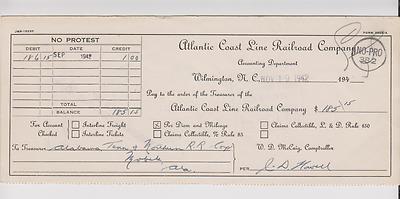 NO PROTEST
DEBIT CREDIT
186 15 SEP 1942 1 00
TOTAL
BALANCE 185 15
Atlantic Coast Line Railroad Company
Accounting Department
NO-PRO
382
Wilmington, N. C. NOV 19 1942 194
Pay to the order of the Treasurer of the
Atlantic Coast Line Railroad Company $ 185 15
For Account Interline Freight Per Diem and Mileage Claims Collectible, L. & D. Rule 450
Checked Interline Tickets Claims Collectible, % Rule 85
To Treasurer Alabama Tenn & Northern R.R. Corp W. D. McCaig, Comptroller
Mobile
Ala. PER